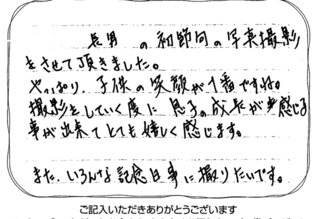 長男の初節句の写真撮影
をさせて頂きました。
やっぱり、子供の笑顔が1番ですね。
撮影をしていく度に息子の成長が感じる
事が出来てとても嬉しく感じます。
また、いろんな記念日事に撮りたいです。
ご記入いただきありがとうございます